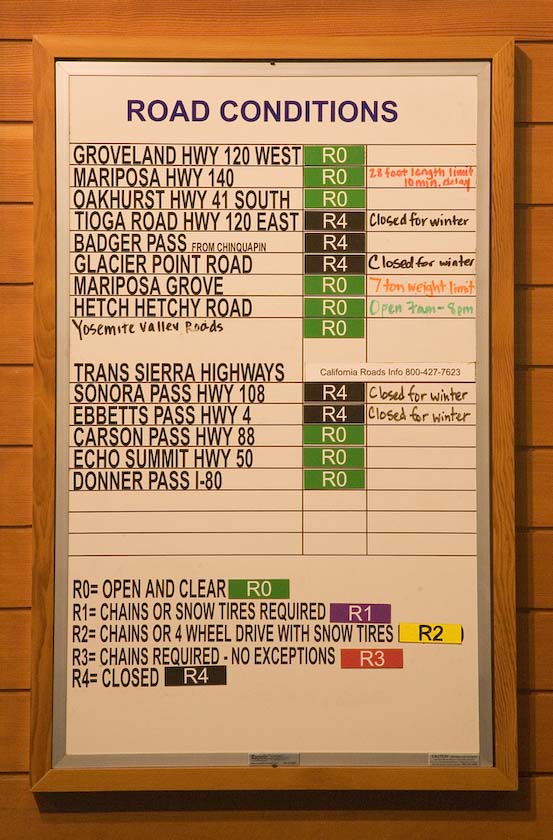 ROAD CONDITIONS
GROVELAND HWY 120 WEST R0
MARIPOSA HWY 140 R0 28 foot length limit
10 min. delay
OAKHURST HWY 41 SOUTH R0
TIOGA ROAD HWY 120 EAST R4 Closed for winter
BADGER PASS FROM CHINQUAPIN R4
GLACIER POINT ROAD R4 Closed for winter
MARIPOSA GROVE R0 7 ton weight limit
HETCH HETCHY ROAD R0 Open 7am-8pm
Yosemite Valley Roads R0
TRANS SIERRA HIGHWAYS California Roads Info 800-427-7623
SONORA PASS HWY 108 R4 Closed for winter
EBBETTS PASS HWY 4 R4 Closed for winter
CARSON PASS HWY 88 R0
ECHO SUMMIT HWY 50 R0
DONNER PASS I-80 R0
R0= OPEN AND CLEAR R0
R1= CHAINS OR SNOW TIRES REQUIRED R1
R2= CHAINS OR 4 WHEEL DRIVE WITH SNOW TIRES R2
R3= CHAINS REQUIRED - NO EXCEPTIONS R3
R4= CLOSED R4